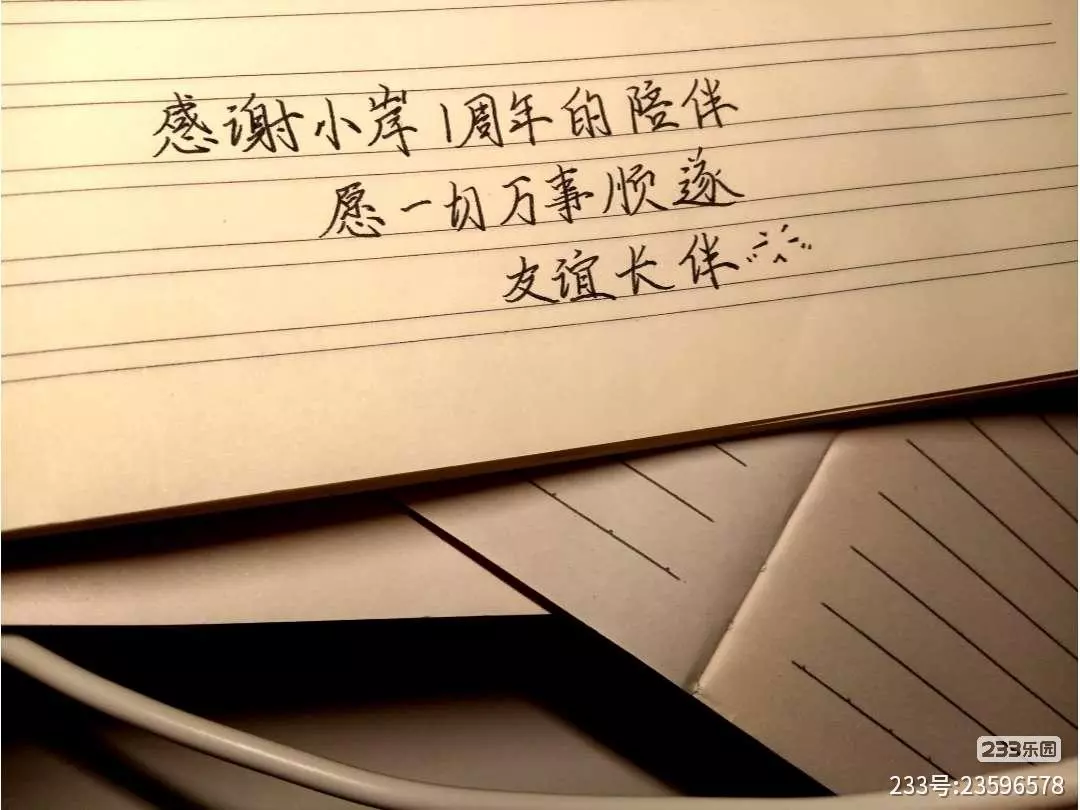 感谢小岸1周年的陪伴
愿一切万事顺遂
友谊长伴
233乐园
233号:23596578